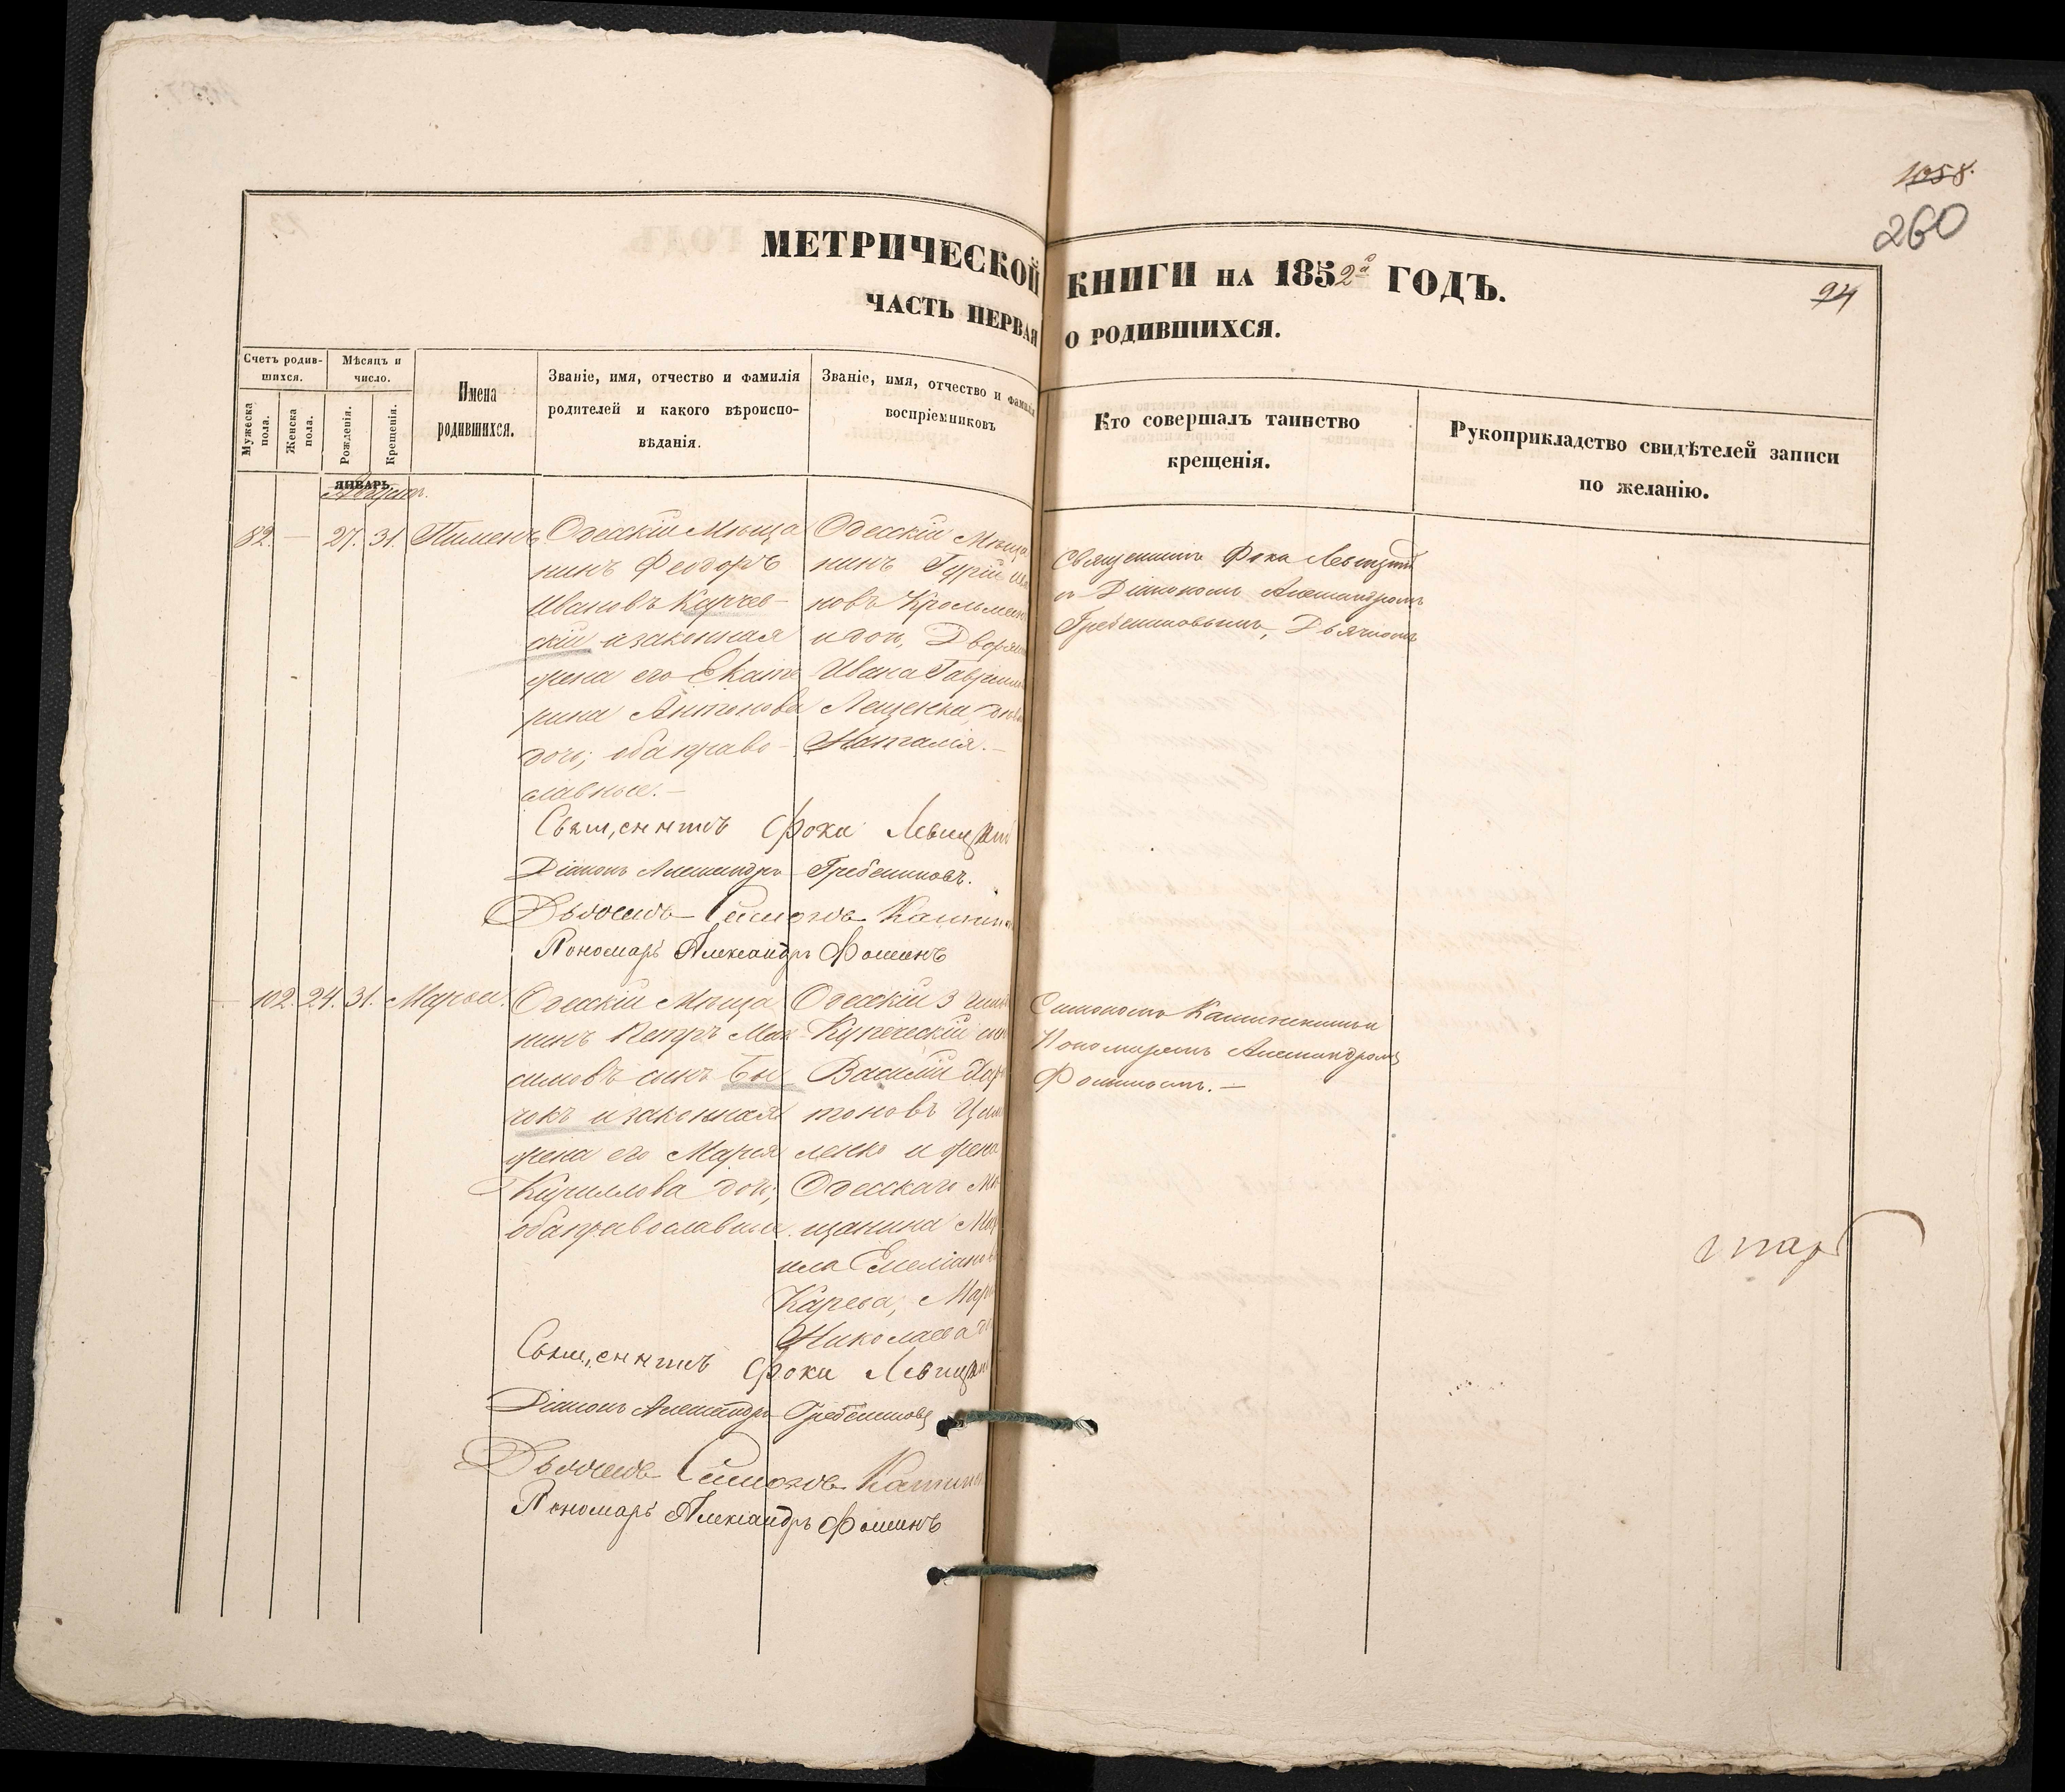 1058.
260
94
МЕТРИЧЕСКОЙ КНИГИ НА 1852 ГОДЪ.
ЧАСТЬ ПЕРВАЯ О РОДИВШИХСЯ.
Счетъ родив-
шихся.
Мужеска
пола.
Женска
пола.
Мѣсяцъ и
число.
Рожденія.
Крещенія.
Имена
родившихся.
Званіе, имя, отчество и фамилія
родителей и какого вѣроиспо-
вѣданія.
Званіе, имя, отчество и фамилія
воспріемниковъ
Кто совершалъ таинство
крещенія.
Рукоприкладство свидѣтелей записи
по желанію.
ЯНВАРЬ.
Августъ.
82. — 27. 31. Пименъ
Одесскій Мѣща
нинъ Феодоръ
Ивановъ Карчев-
скій и законная
жена его Екате
рина Антонова
дочь; оба право-
славные.—
Одесскій Мѣща
нинъ Гурій
новъ
и дочь Дворян
Ивана Гаврил
Лещенка,
Наталія.—
Священникъ Фока Левицкій
съ Діакономъ Александромъ
Гребенниковымъ, Дьячкомъ
Священникъ Фока Левицкій
Діаконъ Александръ Гребенниковъ.
Дьячекъ Симонъ
Пономарь Александръ Фоминъ
— 102. 24. 31. Марья.
Одесскій Мѣща
нинъ Петръ Мак
симовъ сынъ Бы
чокъ и законная
жена его Марія
Кириллова дочь;
оба православные.
Одесскій 3 гил
Купеческій
Василій Хар
тоновъ
ленко и жена
Одесскаго Мѣ
щанина Мих
ила Емеліанов
Карева, Мар
Николаева
Симономъ
Пономаремъ Александромъ
Фоминымъ.—
Священникъ Фока Левицкій
Діаконъ Александръ Гребенниковъ
Дьячекъ Симонъ
Пономарь Александръ Фоминъ